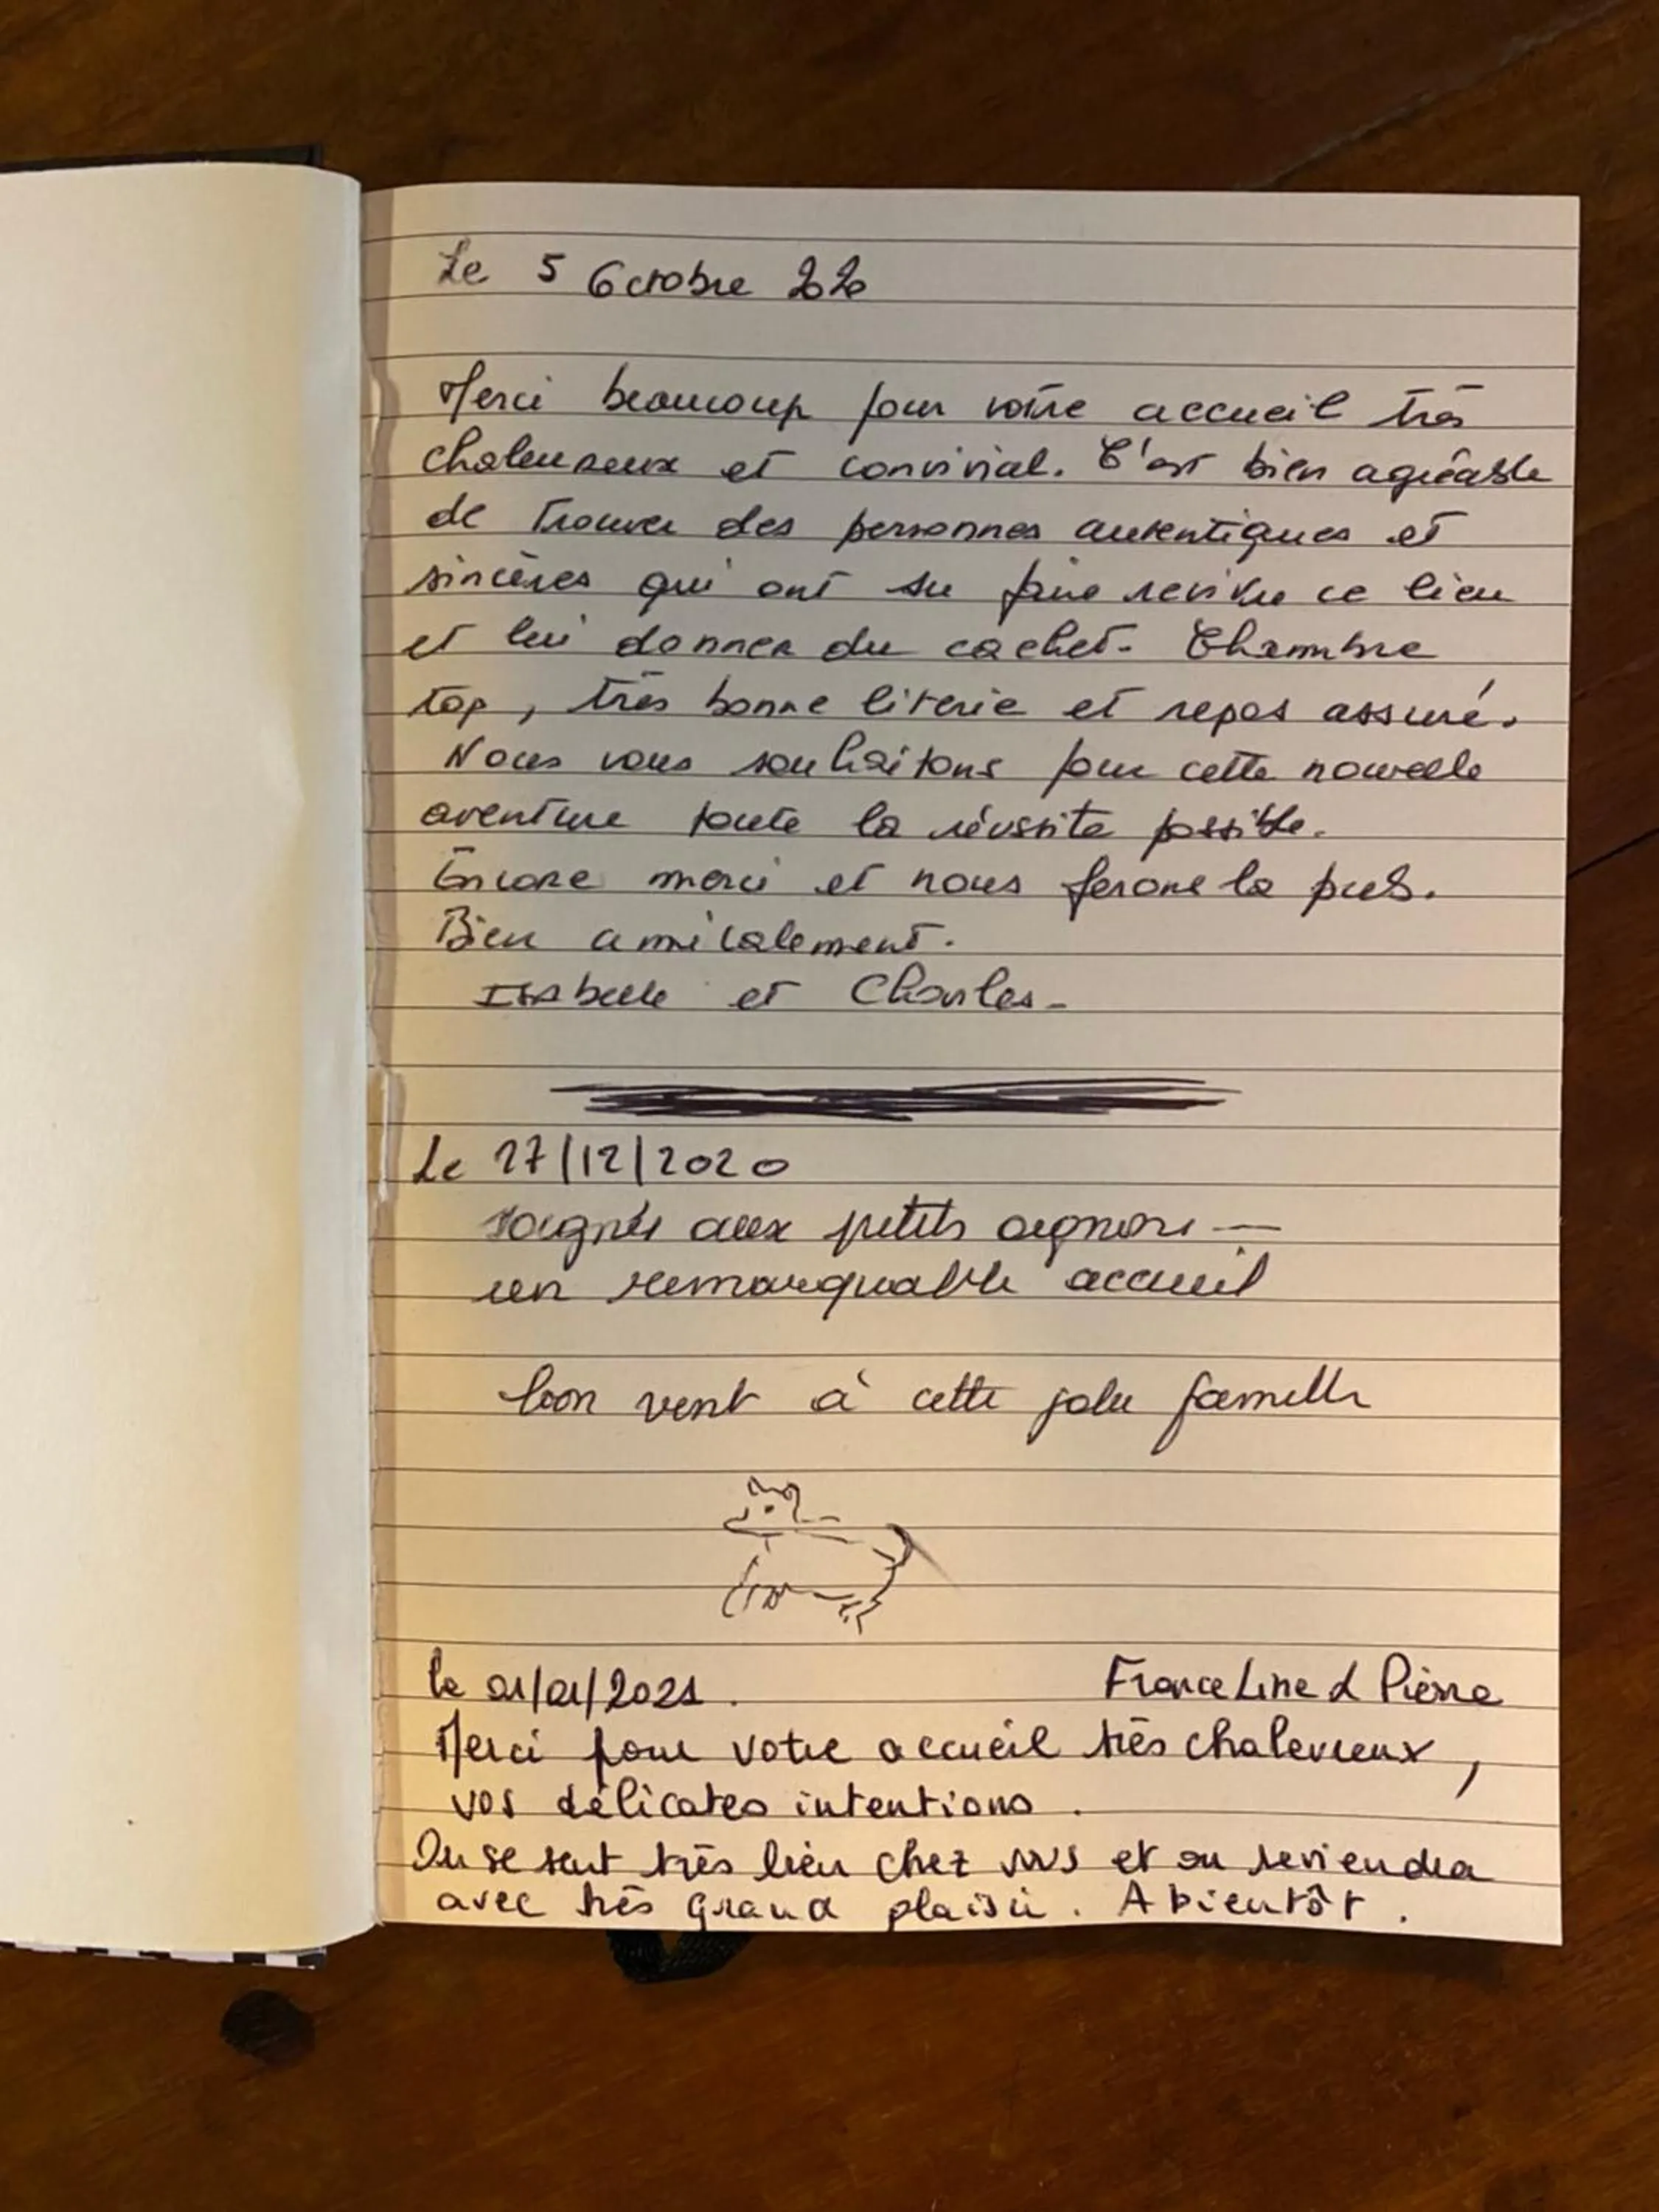 Le 5 Octobre 2020
Merci beaucoup pour votre accueil très
chaleureux et convivial. C'est bien agréable
de trouver des personnes autentiques et
sincères qui ont su faire revivre ce lieu
et lui donner du cachet. Chambre
top, très bonne literie et repos assuré.
Nous vous souhaitons pour cette nouvelle
aventure toute la réussite possible.
Encore merci et nous ferons la pub.
Bien amicalement.
Isabelle et Charles-
Le 27/12/2020
soignés aux petits oignons —
un remarquable accueil
bon vent à cette jolie famille
le 01/01/2021. FranceLine & Pierre
Merci pour votre accueil très chaleureux,
vos délicates intentions.
On se sent très bien chez vous et on reviendra
avec très grand plaisir. A bientôt.